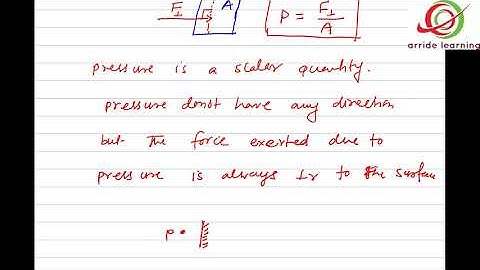 F⊥ A P = F⊥/A
arride learning
pressure is a scaler quantity.
pressure donot have any direction
but the force exerted due to
pressure is always ⊥r to the surface
P